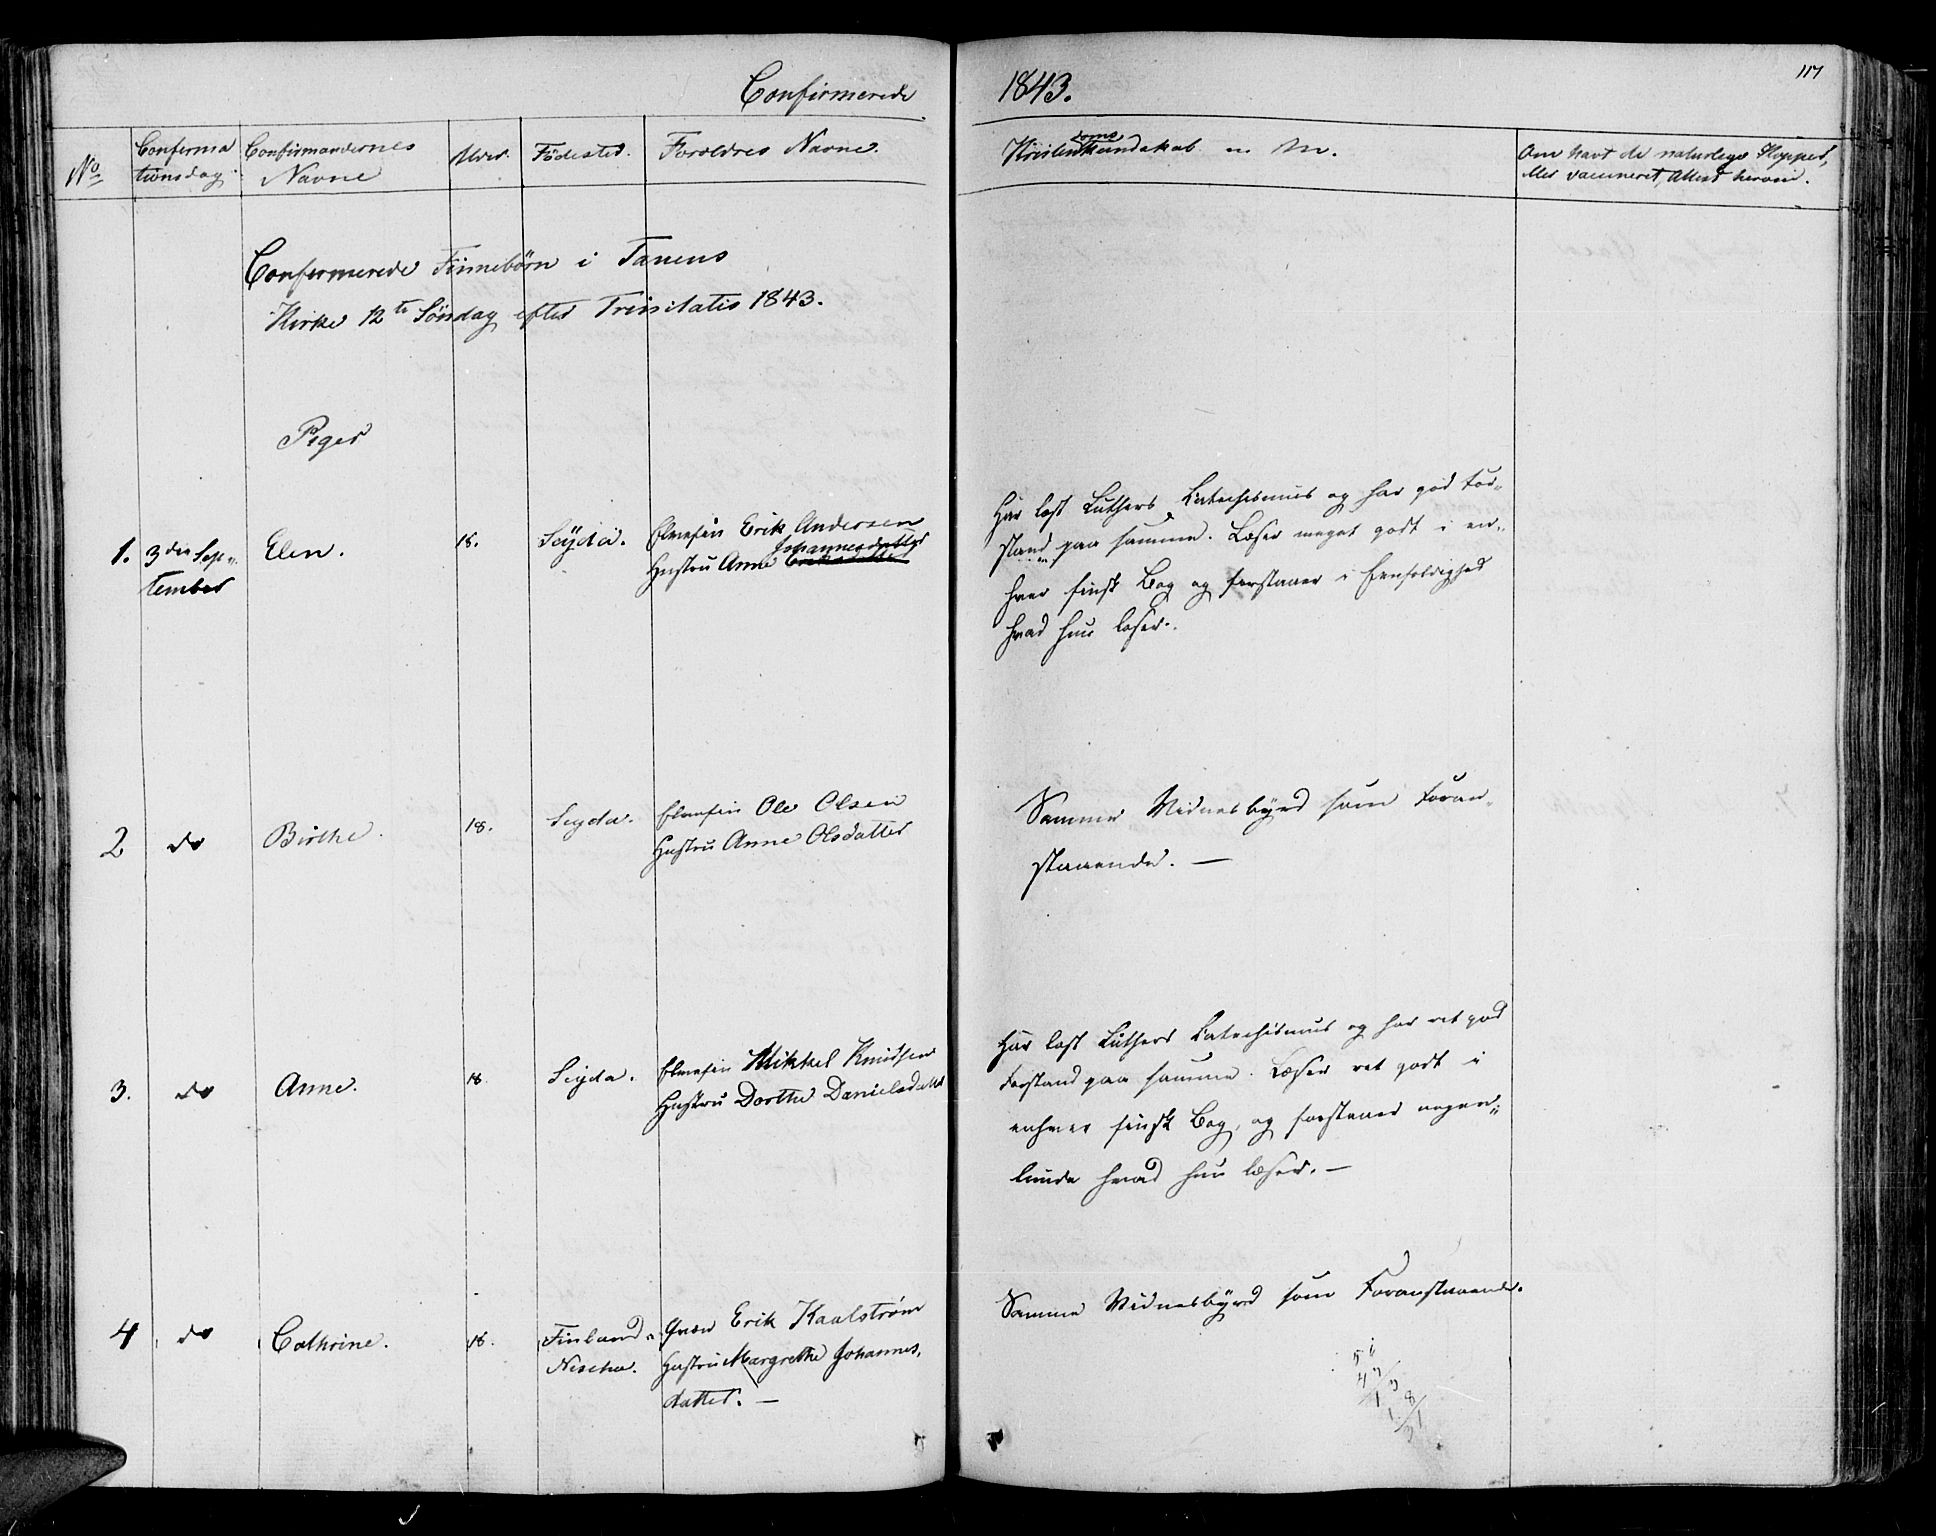 Confirmerede
1843.
117
No
Confirma
tionsdag.
Confirmandernes
Navne
Alder.
Födested.
Forældres Navne.
Kristendomskundskab m. M.
Om havt de naturlige Kopper,
eller vaccineret, Attest herom.
Confirmerede Finnebörn i Tanens
Kirke 12te Söndag efter Trinitatis 1843.
Piger
1.
3die Sep-
tember
Elen.
18.
Seÿda.
Elvefin Erik Andersen
Johannesdatter
Hustru Anne Eriksdatter
Har læst Luthers Catechismus og har god For-
stand paa samme. Læser meget godt i en-
hver finsk Bog og forstaaer i Eenfoldighed
hvad hun læser.
2
do
Birthe.
18.
Seyda.
Elvefin Ole Olsen
Hustru Anne Olsdatter
Samme Vidnesbyrd som Foran-
staaende. —
3.
do
Anne.
18.
Seyda.
Elvefin Mikkel Knudsen
Hustru Dorthe Danielsdatter
Har læst Luthers Catechismus og har ret god
Forstand paa samme. Læser ret godt i
enhver finsk Bog, og forstaaer nogen-
lunde hvad hun læser. —
4
do
Cathrine.
18.
Finland
Nescha.
Qvæn Erik Kaalström
Hustru Margrethe Johannes-
datter. —
Samme Vidnesbyrd som Foranstaaende.